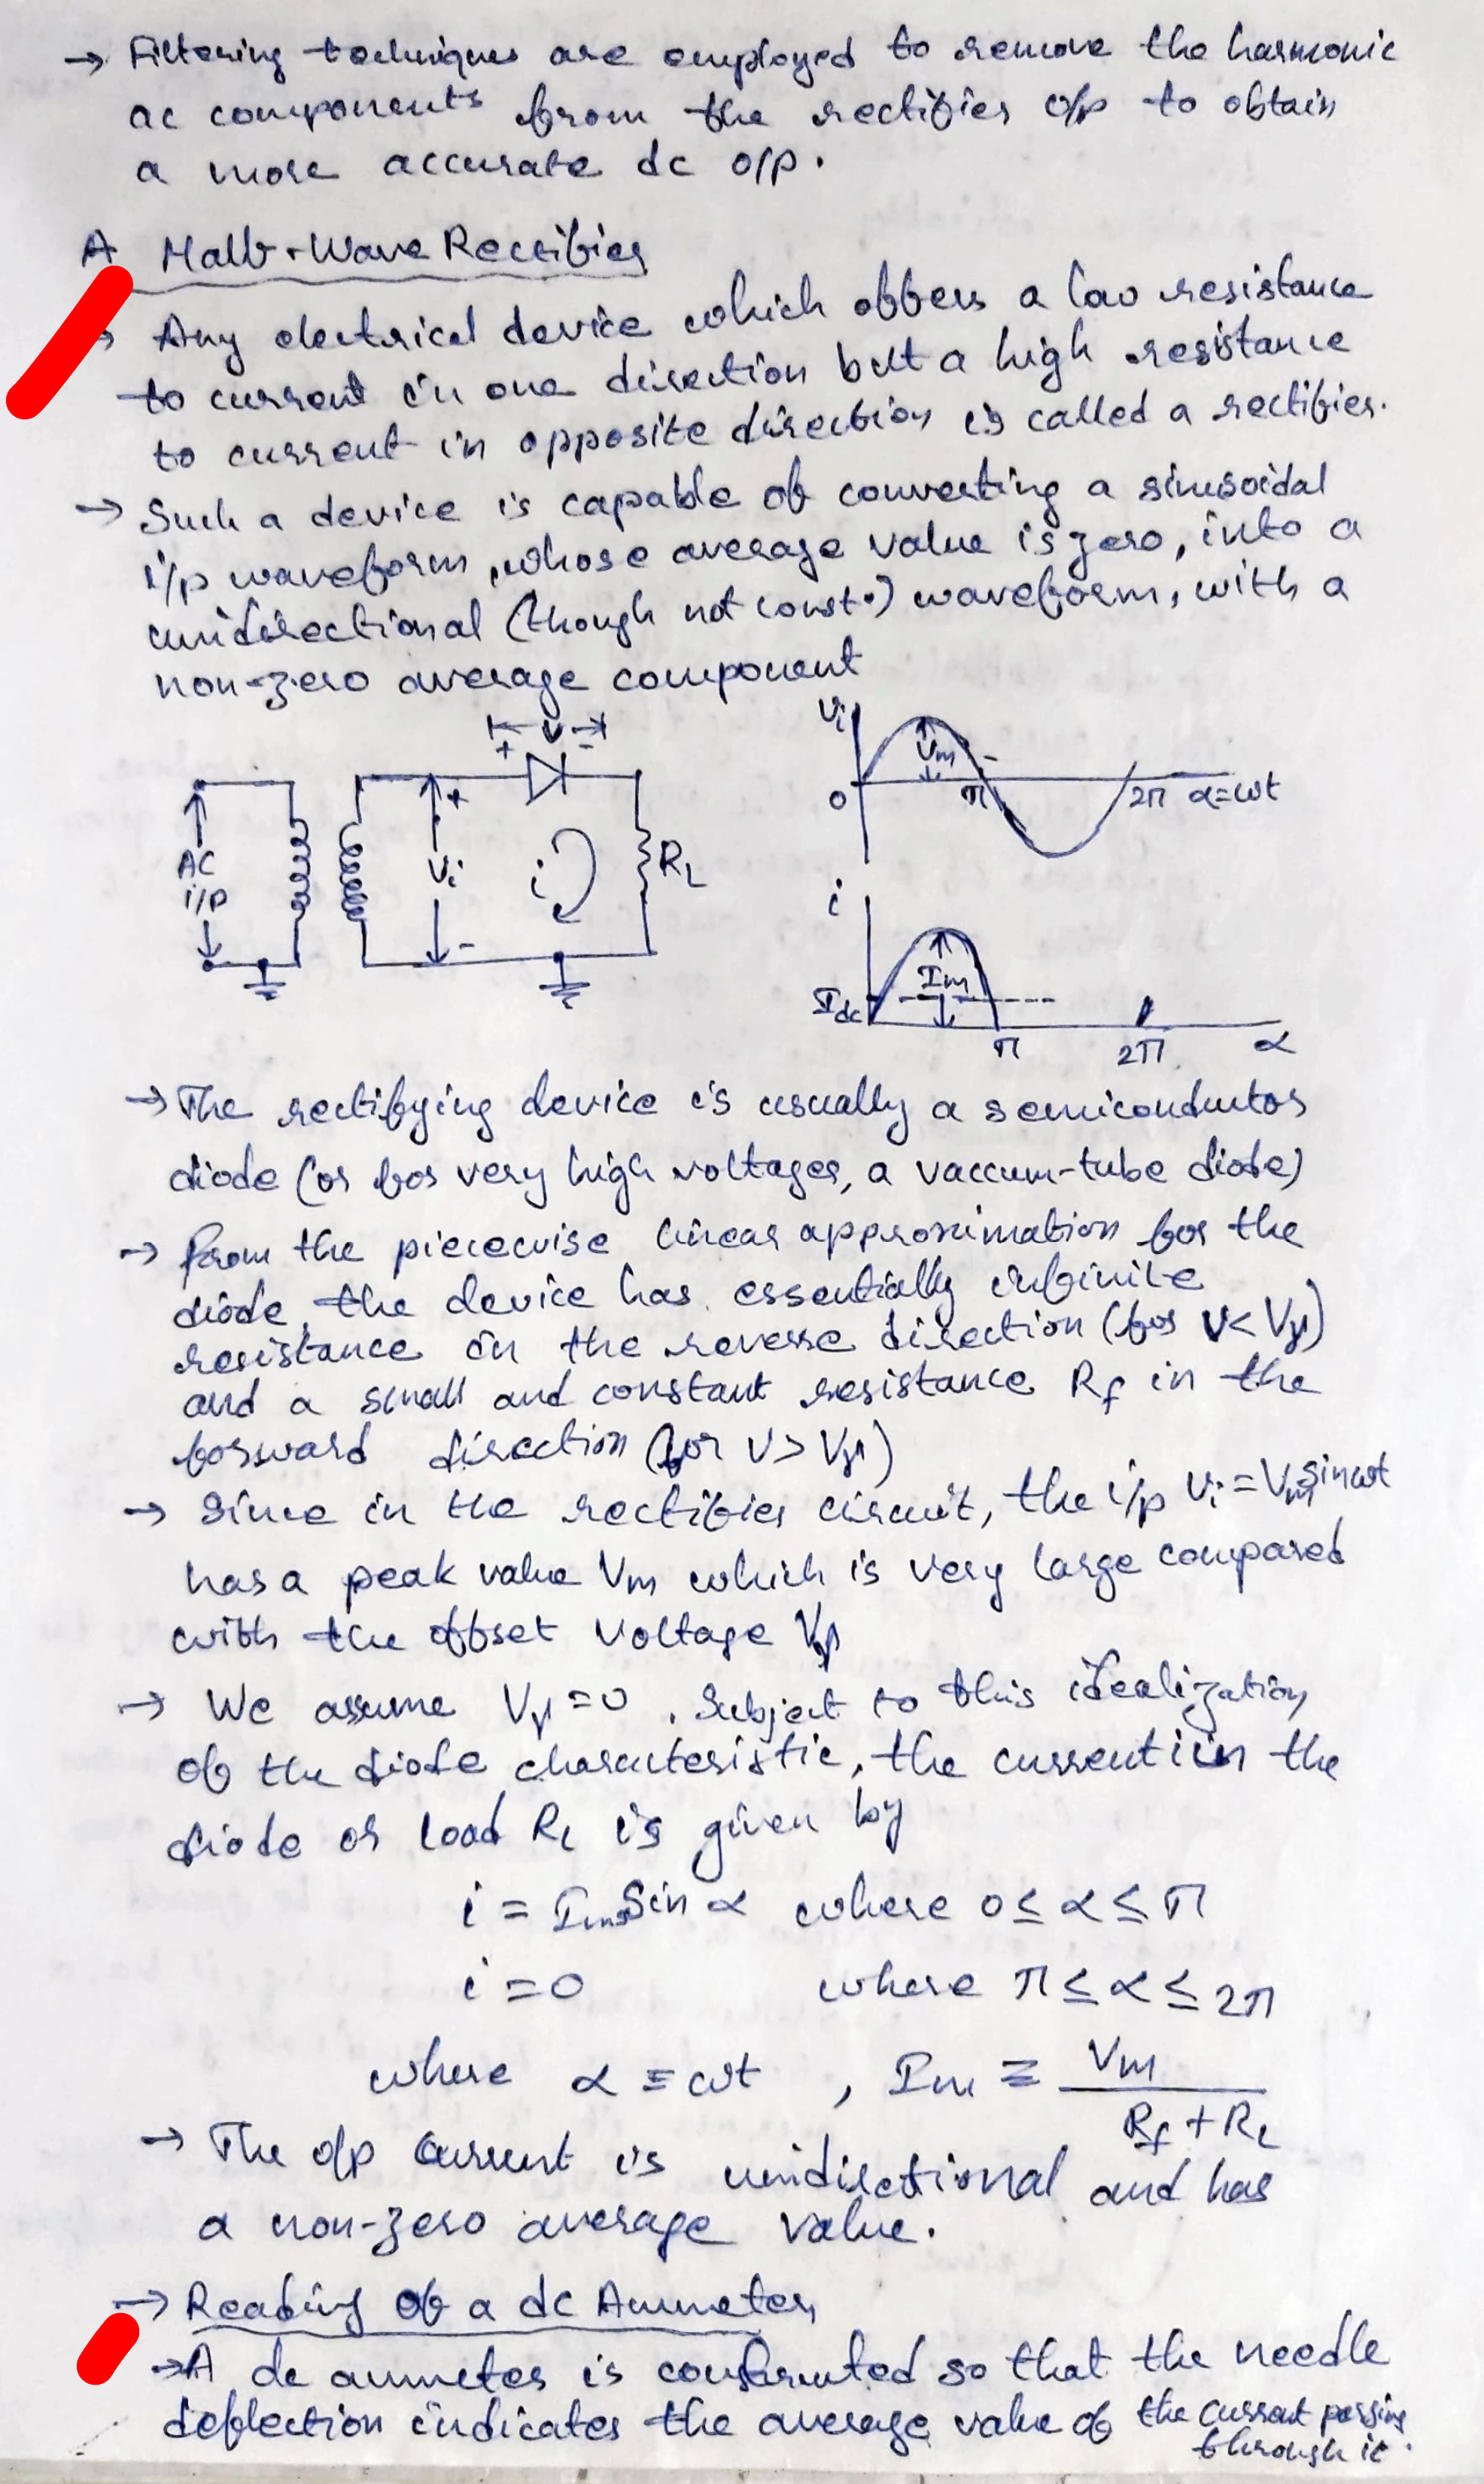 → Filtering techniques are employed to remove the harmonic
ac components from the rectifier o/p to obtain
a more accurate dc o/p.
A Half-Wave Rectifier
→ Any electrical device which offers a low resistance
to current in one direction but a high resistance
to current in opposite direction is called a rectifier.
→ Such a device is capable of converting a sinusoidal
i/p waveform, whose average value is zero, into a
unidirectional (though not const.) waveform, with a
non-zero average component
+ V -
AC
i/p
+
Vi
-
i
RL
Vi
Vm
0
π
2π
α=ωt
i
Im
Idc
π
2π
α
→ The rectifying device is usually a semiconductor
diode (or for very high voltages, a vaccum-tube diode)
→ From the piecewise linear approximation for the
diode, the device has essentially infinite
resistance in the reverse direction (for V< Vγ)
and a small and constant resistance Rf in the
forward direction (for V> Vγ)
→ Since in the rectifier circuit, the i/p Vi = Vm sinωt
has a peak value Vm which is very large compared
with the offset voltage Vγ
→ We assume Vγ=0. Subject to this idealization
of the diode characteristic, the current i in the
diode or load RL is given by
i = Im Sin α where 0 ≤ α ≤ π
i = 0 where π ≤ α ≤ 2π
where α ≡ ωt , Im ≡ Vm
Rf + RL
→ The o/p current is unidirectional and has
a non-zero average value.
→ Reading of a dc Ammeter
→ A dc ammeter is constructed so that the needle
deflection indicates the average value of the current passing
through it.